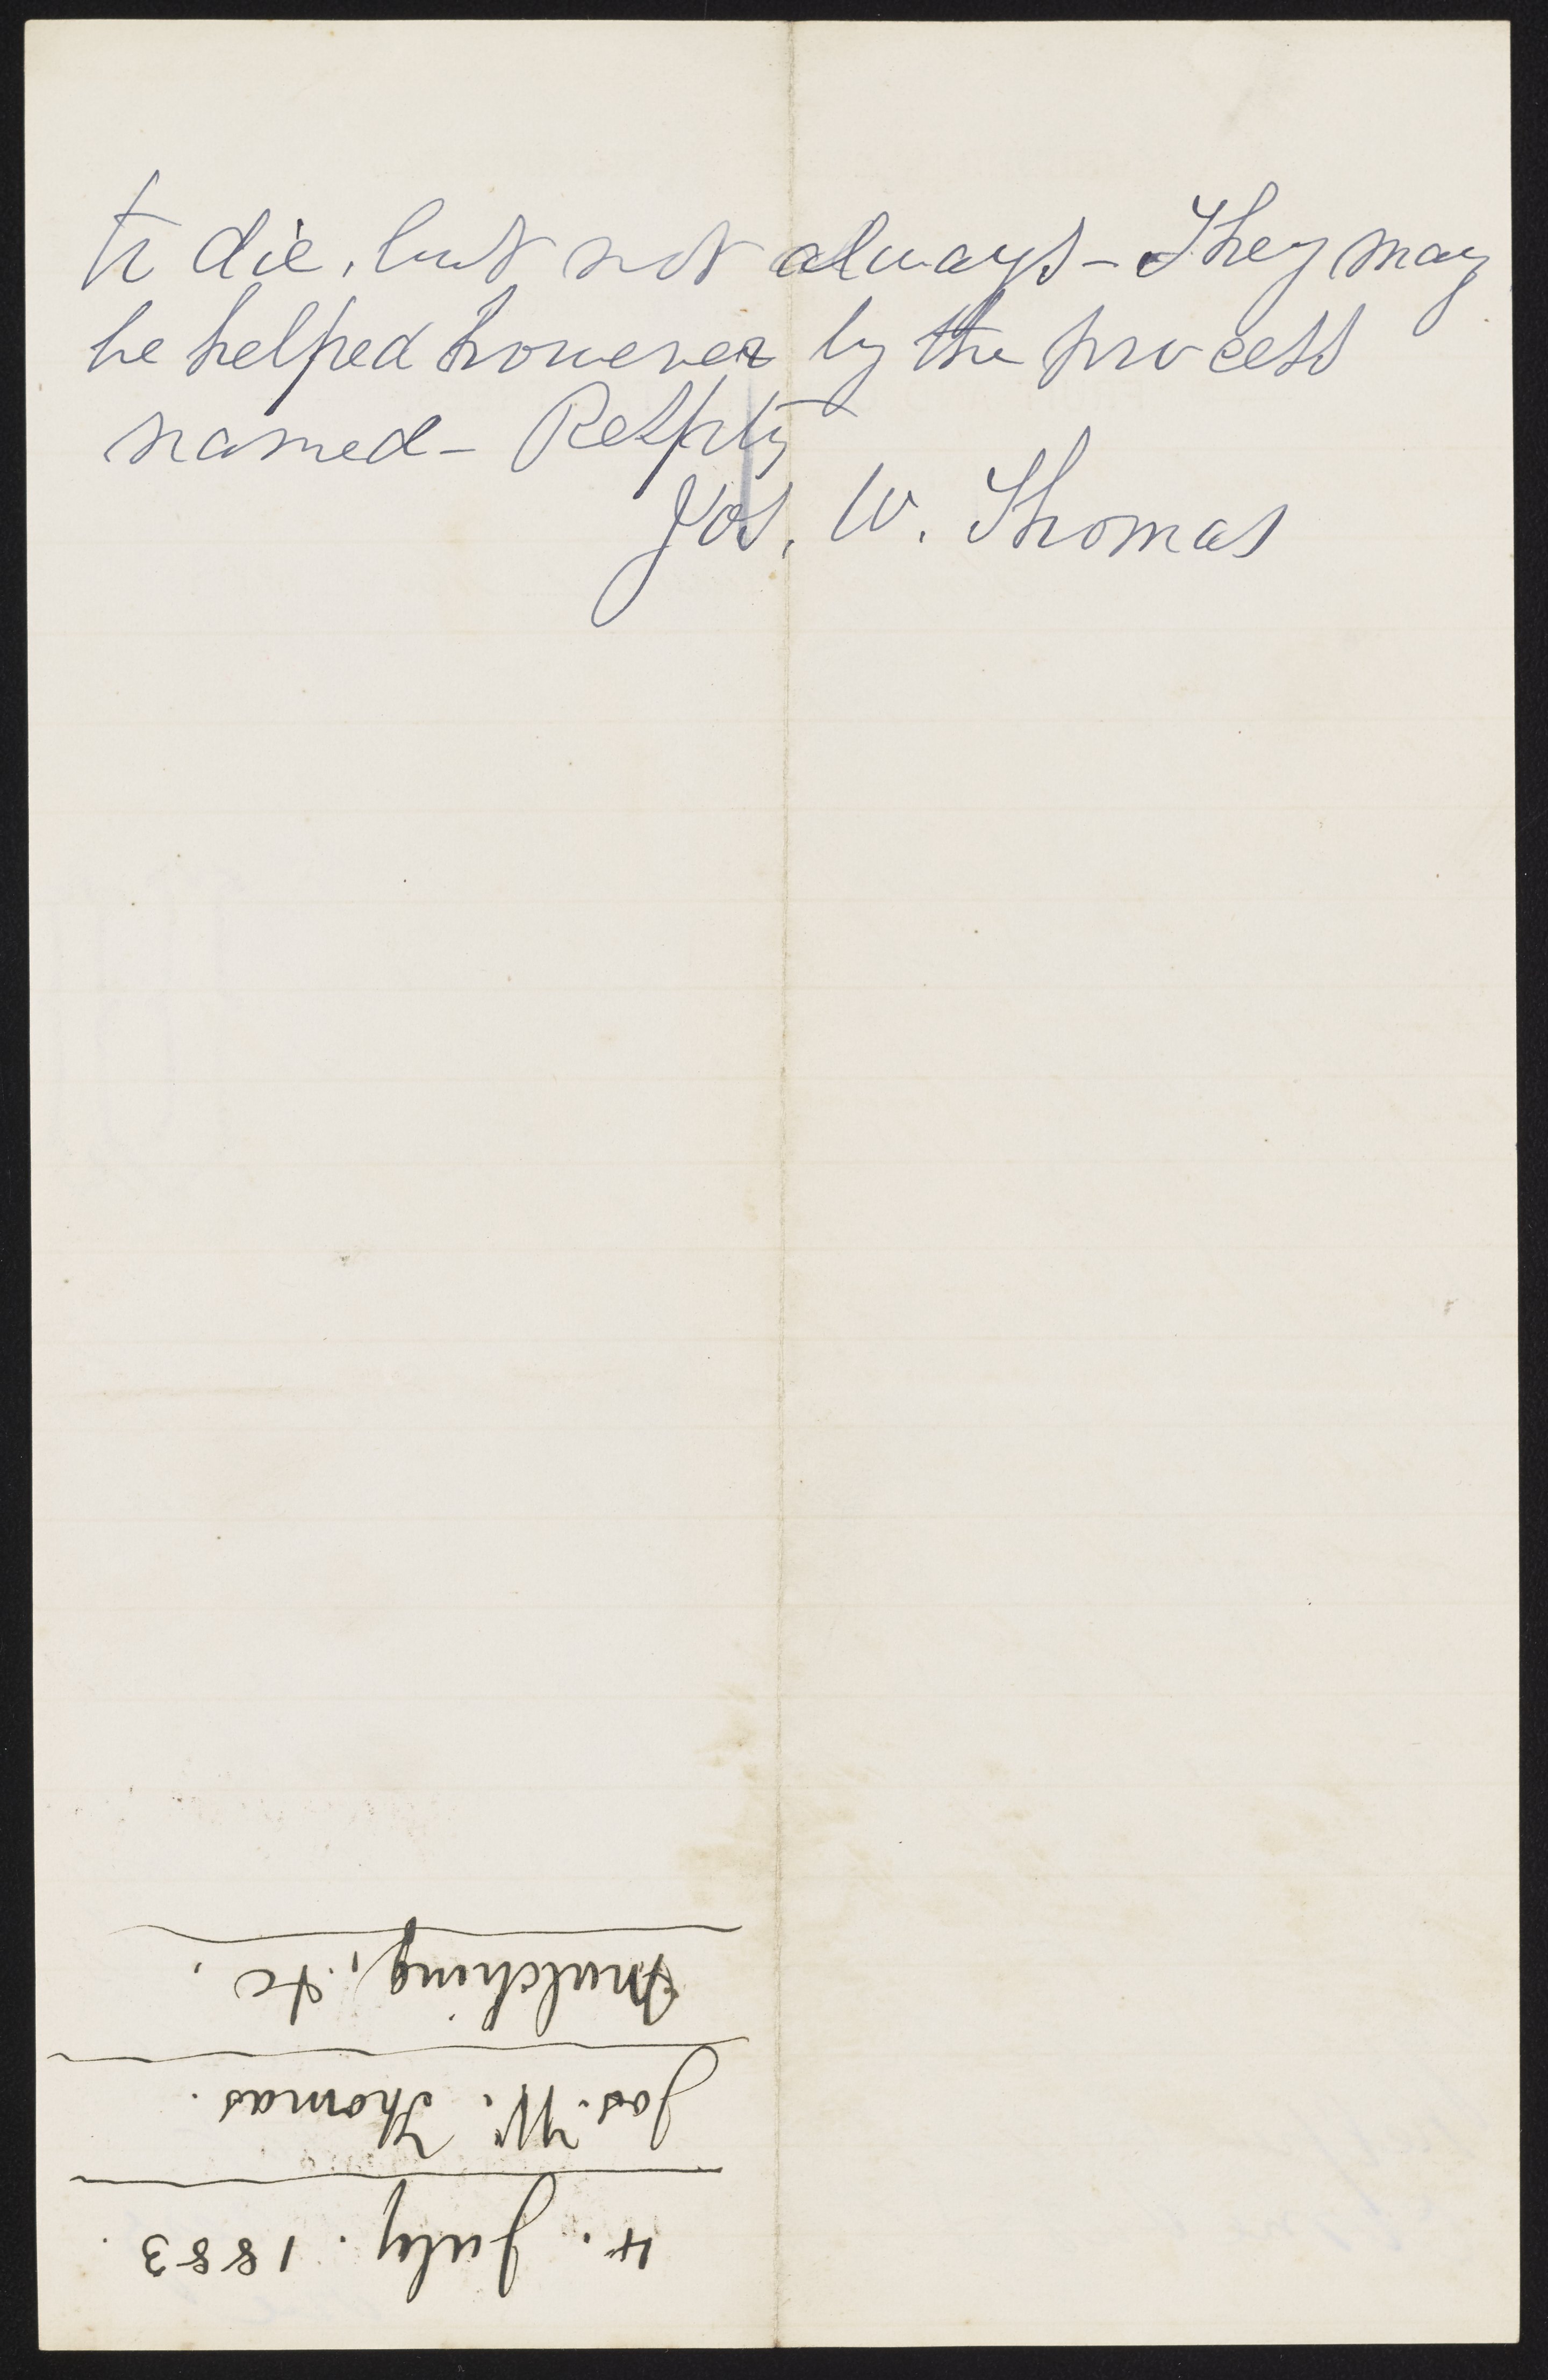 to die, but not always – They may
be helped however by the process
named – Respty
Jos. W. Thomas
4. July. 1883.
Jos. W. Thomas.
Mulching, &c.